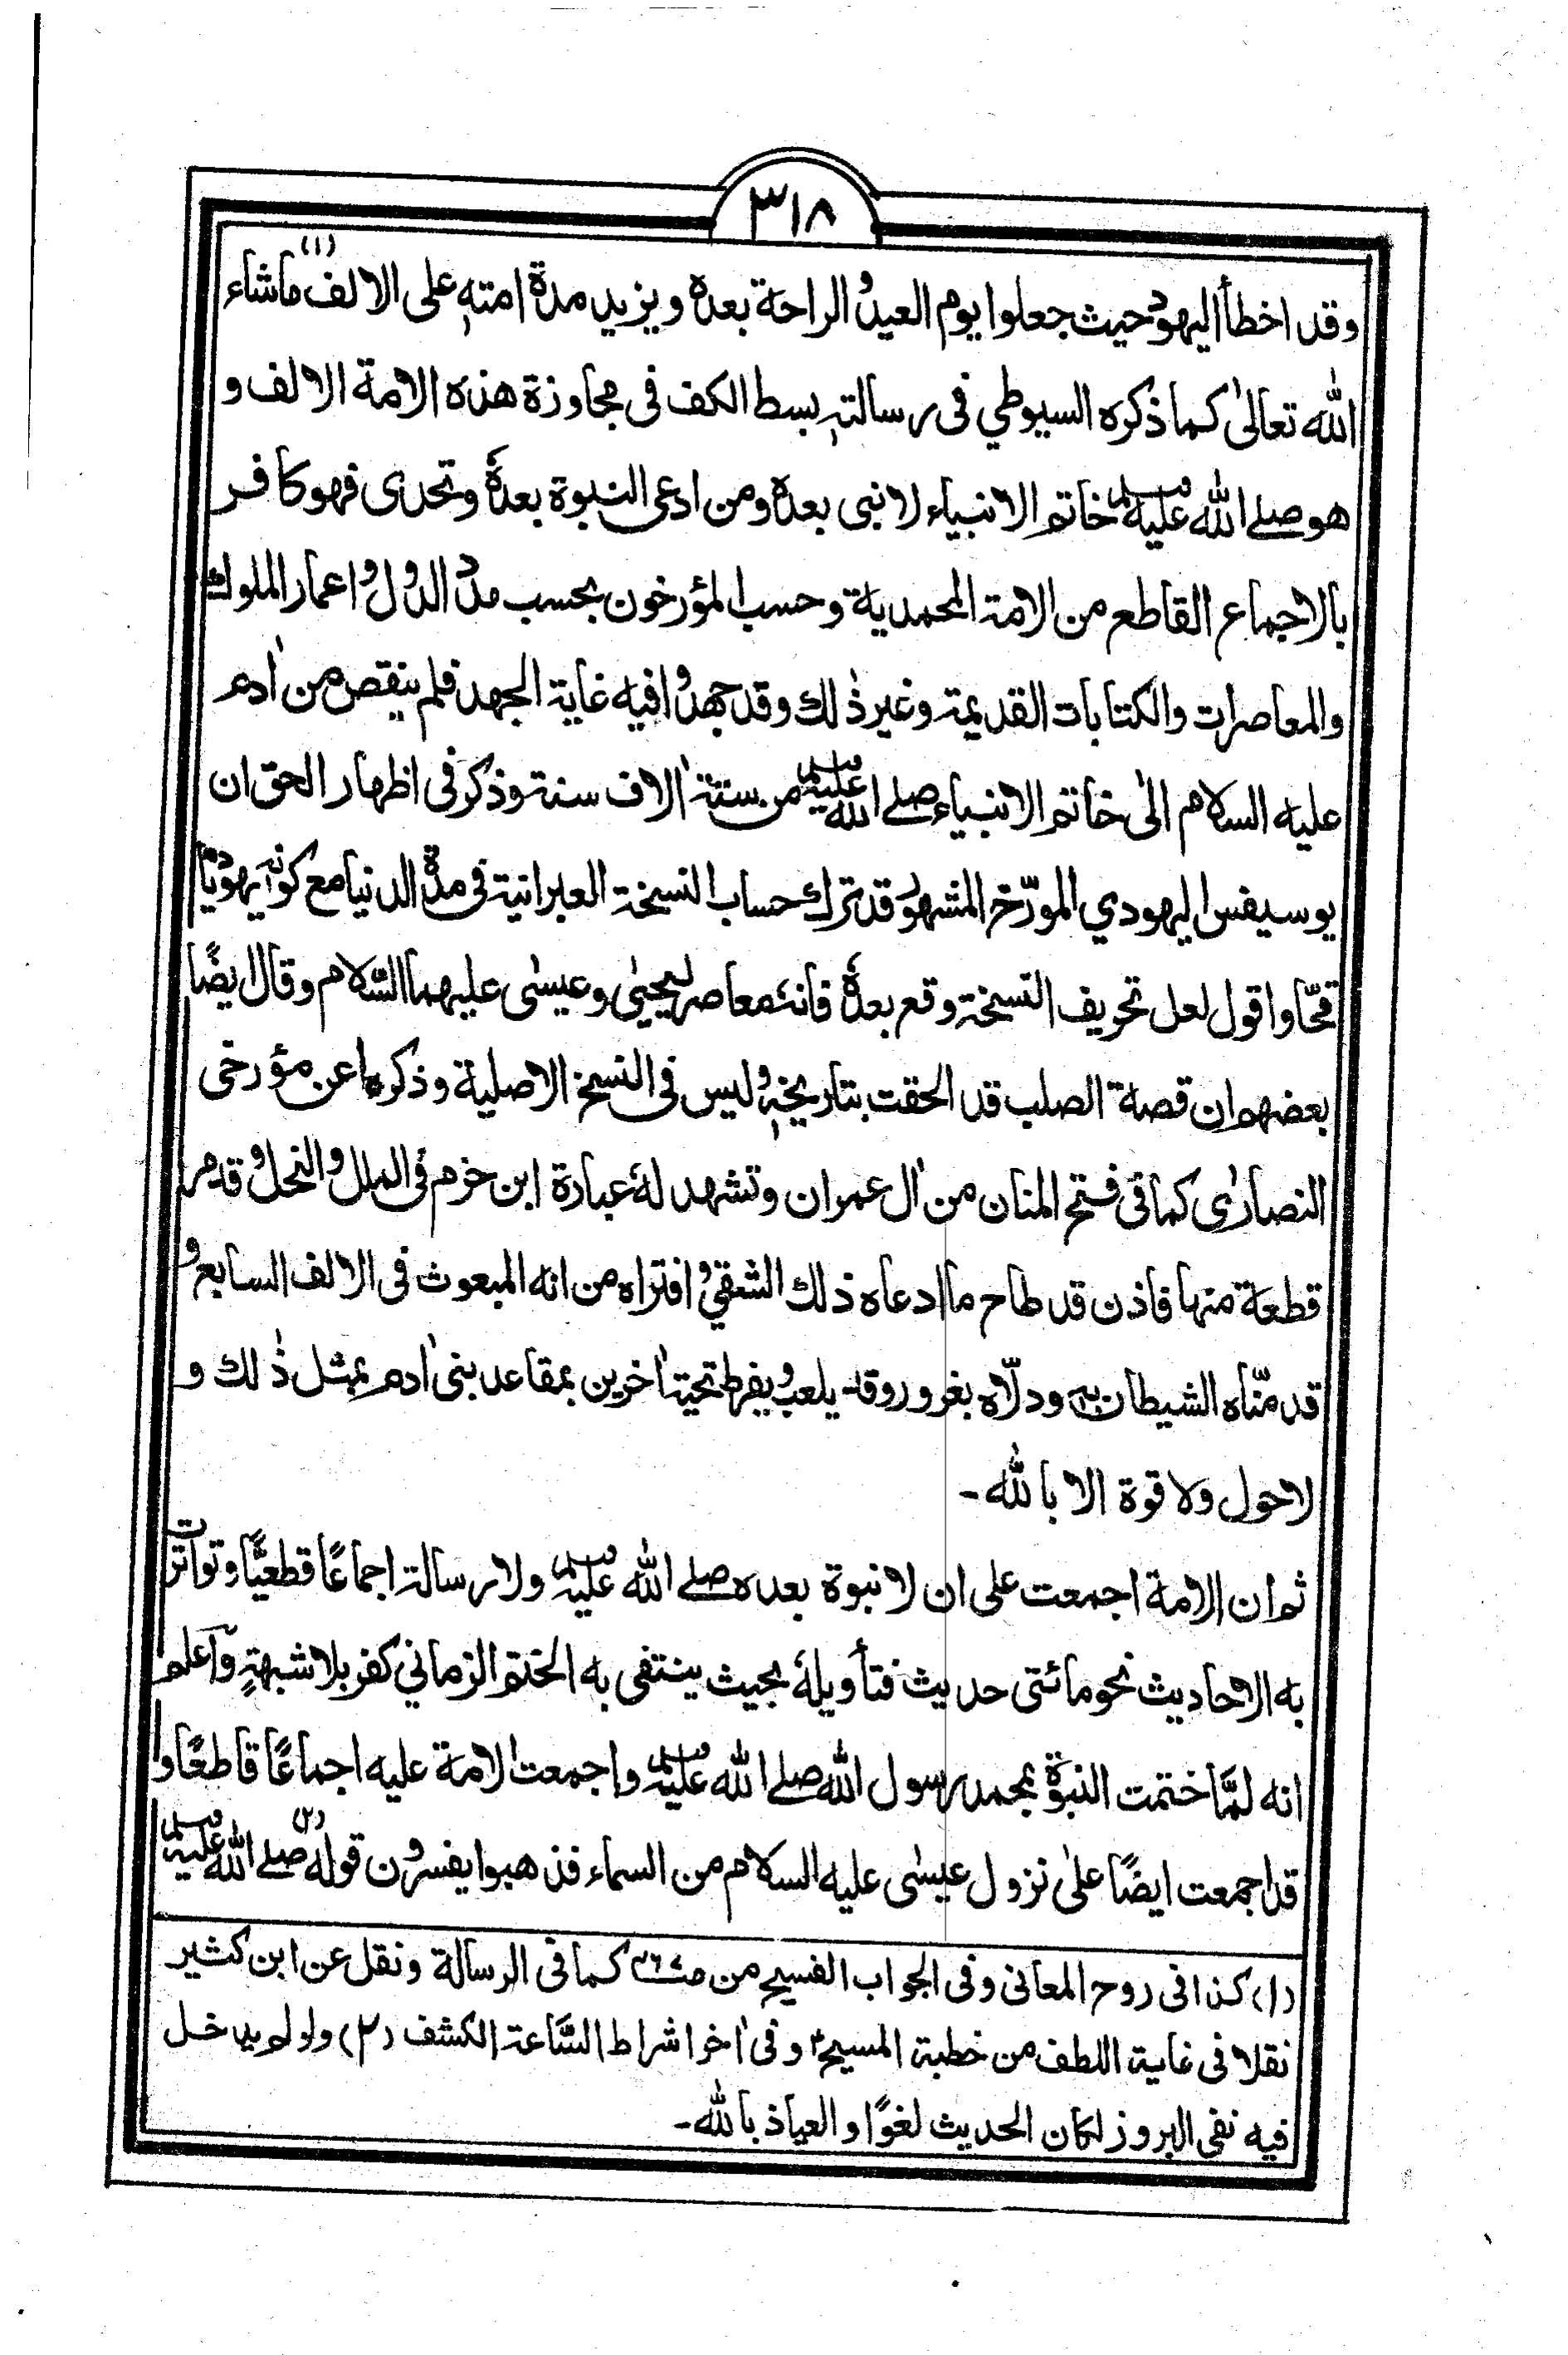 ٣١٨
وقد اخطأ اليهود حيث جعلوا يوم العيد و الراحة بعده ويزيد مدة امته على الالف (١) ماشاء
الله تعالىٰ كما ذكره السيوطي فى رسالته بسط الكف فى مجاوزة هذه الامة الالف و
هو صلے الله عليه وسلم خاتم الانبياء لا نبى بعده ومن ادعى النبوة بعدهٗ وتحدى فهو كافر
بالاجماع القاطع من الامة المحمدية وحسب المؤرخون بحسب مدد الدول و اعمار الملوك
والمعاصرات والكتابات القديمة وغير ذٰلك وقد جهدوا فيه غاية الجهد فلم ينقص من اٰدم
عليه السلام الىٰ خاتم الانبياء صلے الله عليه وسلم من ستة اٰلاف سنة وذكر فى اظهار الحق ان
يوسيفس اليهودي المورّخ المشهور قد ترك حساب النسخة العبرانية فى مدة الدنيا مع كونه يهوديًّا
قحّا واقول لعل تحريف النسخة وقع بعدهٗ فانه معاصر ليحيىٰ وعيسىٰ عليهما السّلام وقال ايضًا
بعضهم ان قصة الصلب قد الحقت بتاريخه و ليس فى النسخ الاصلية وذكره عن مؤرخى
النصارىٰ كما فى فتح المنان من اٰل عمران وتشهد لهٗ عبارة ابن حزم فى الملل والنحل و قد مر
قطعة منها فاذن قد طاح ما ادعاه ذلك الشقي و افتراه من انه المبعوث فى الالف السابع و
قد منّاه الشيطان به ودلّاه بغرور وقد يلعب و يفرط تحية اٰخرين بمقاعد بنى اٰدم بمثل ذٰلك و
لاحول ولا قوة الا بالله -
ثم ان الامة اجمعت على ان لا نبوة بعده صلے الله عليه وسلم ولا رسالة اجماعًا قطعيًّا وتواترت
به الاحاديث نحو مائتى حديث فتأويلهٗ بحيث ينتفى به الختم الزماني كفر بلا شبهةٍ واعلم
انه لمّا ختمت النبوة بمحمد رسول الله صلے الله عليه وسلم واجمعت الامة عليه اجماعًا قاطعًا وا
قد اجمعت ايضًا علىٰ نزول عيسىٰ عليه السلام من السماء فذهبوا يفسرون قوله (٢) صلے الله عليه وسلم
(١) كذا فى روح المعانى وفى الجواب الفسيح من كما فى الرسالة ونقل عن ابن كثير
نقلا فى غاية اللطف من خطبة المسيح وفى اٰخر اشراط السَّاعة الكشف (٢) ولو لم يدخل
فيه نفى البروز لكان الحديث لغوًا و العياذ بالله-